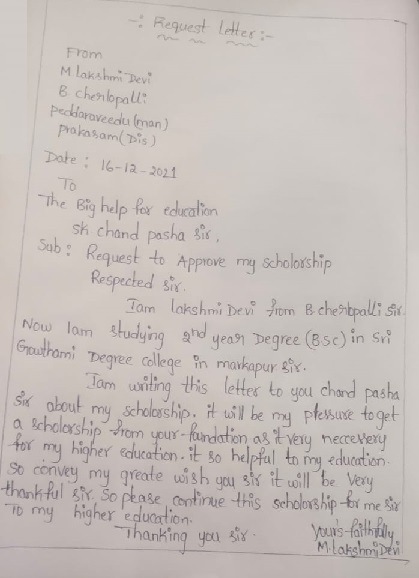 -: Request letter:-
From
M lakshmi Devi
B cherlopalli
peddaraveedu (man)
prakasam (Dis)
Date : 16-12-2021
To
The Big help for education
sk chand pasha sir,
Sub : Request to Approve my scholorship
Respected sir.
Iam lakshmi Devi from B.cherlopalli sir.
Now Iam studying 2nd year Degree (BSC) in Sri
Gowthami Degree college in markapur sir.
Iam writing this letter to you chand pasha
sir about my scholorship. it will be my plessure to get
a scholorship from your foundation as it very neccevery
for my higher education. it so helpful to my education.
so convey my greate wish you sir it will be very
thankful sir. so please continue this scholorship for me sir
To my higher education.
Thanking you sir.
your's faithfully
M.Lakshmi Devi